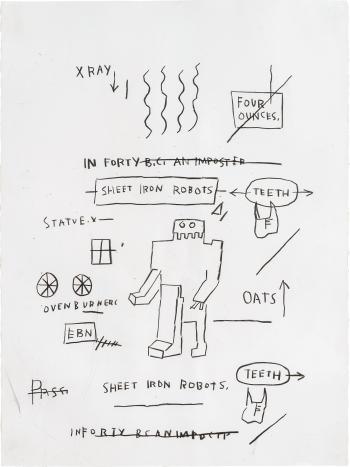 XRAY
FOUR
OUNCES.
IN FORTY B.C. AN IMPOSTER
SHEET IRON ROBOTS
TEETH
F
STATUE.X
OVENBURNERS
OATS
EBN
TEETH
PASS
SHEET IRON ROBOTS.
F
IN FORTY B.C AN IMPOSTER